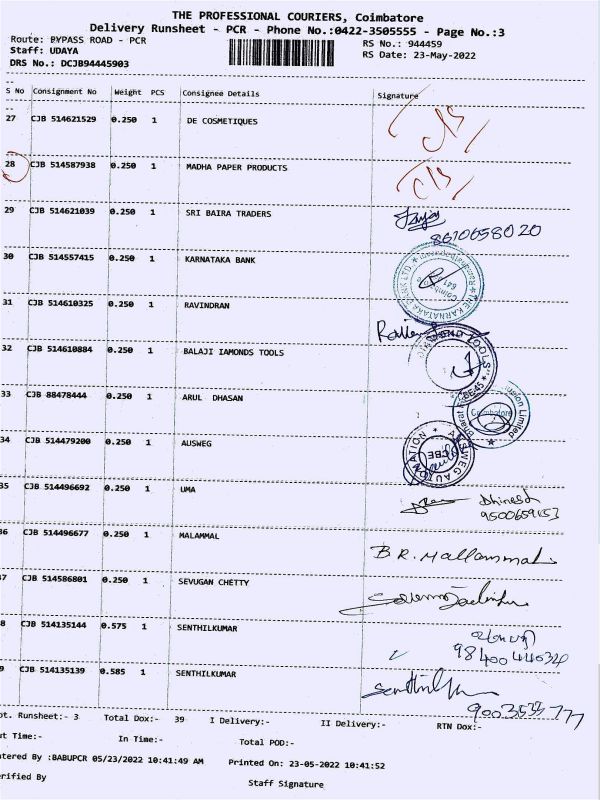 THE PROFESSIONAL COURIERS, Coimbatore
Delivery Runsheet - PCR - Phone No.:0422-3505555 - Page No.:3
Route: BYPASS ROAD - PCR RS No.: 944459
Staff: UDAYA RS Date: 23-May-2022
DRS No.: DCJB94445903
S No Consignment No Weight PCS Consignee Details Signature
27 CJB 514621529 0.250 1 DE COSMETIQUES
28 CJB 514587938 0.250 1 MADHA PAPER PRODUCTS
29 CJB 514621039 0.250 1 SRI BAIRA TRADERS
8610658020
30 CJB 514557415 0.250 1 KARNATAKA BANK
THE KARNATAKA BANK LTD.
31 CJB 514610325 0.250 1 RAVINDRAN
32 CJB 514610884 0.250 1 BALAJI IAMONDS TOOLS
TOOLS
33 CJB 88478444 0.250 1 ARUL DHASAN
Coimbatore
Limited
34 CJB 514479200 0.250 1 AUSWEG
CBE
35 CJB 514496692 0.250 1 UMA
Dhinesh
9500659153
36 CJB 514496677 0.250 1 MALAMMAL
B.R. Mallammal
37 CJB 514586801 0.250 1 SEVUGAN CHETTY
8 CJB 514135144 0.575 1 SENTHILKUMAR
9 CJB 514135139 0.585 1 SENTHILKUMAR
9003533777
ot. Runsheet:- 3 Total Dox:- 39 I Delivery:- II Delivery:- RTN Dox:-
ut Time:- In Time:- Total POD:-
ntered By :BABUPCR 05/23/2022 10:41:49 AM Printed On: 23-05-2022 10:41:52
erified By Staff Signature